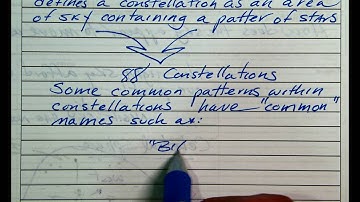 defines a constellation as an area
of sky containing a patter of stars
88 Constellations
Some common patterns within
constellations have "common"
names such as:
"Bi